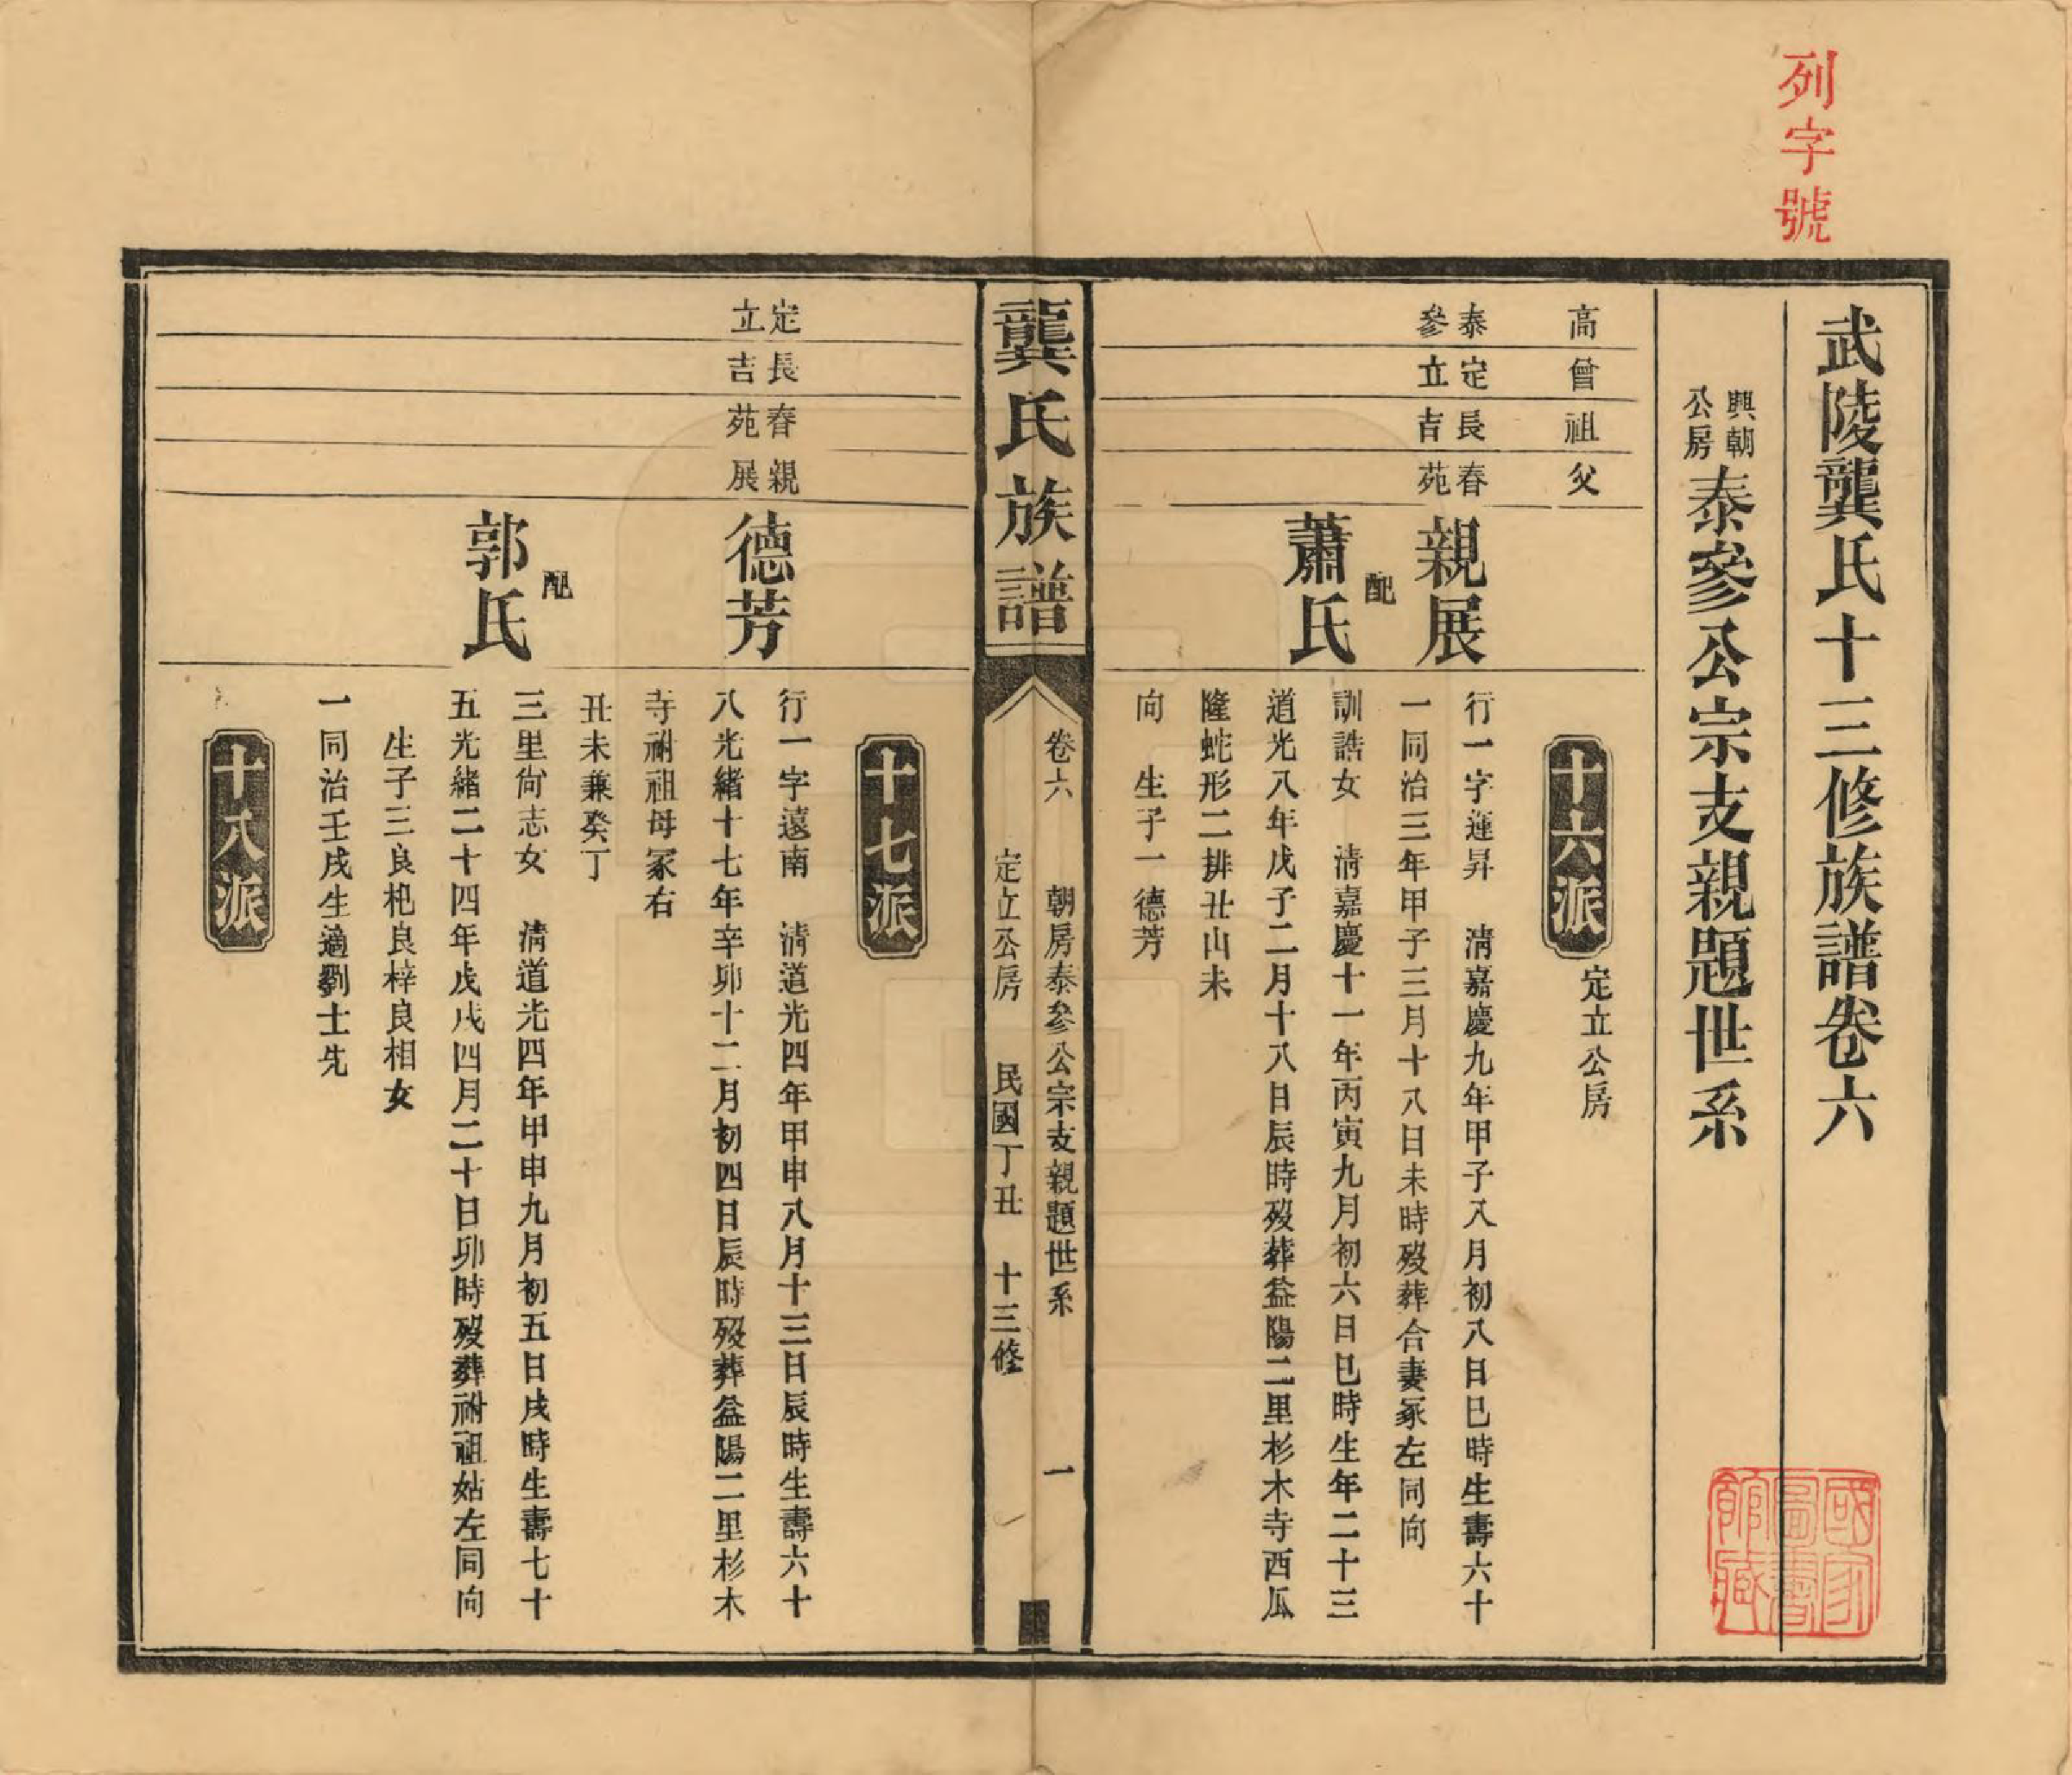 列字號
武陵龔氏十三修族譜卷六
興朝公房
泰參公宗支親題世系
國家圖書館藏
高
曾
祖
父
十六派
定立公房
泰參
定立
長吉
春苑
親展
行一字運昇　清嘉慶九年甲子八月初八日巳時生壽六十
一同治三年甲子三月十八日未時歿葬合妻冢左同向
配
蕭氏
訓誥女　清嘉慶十一年丙寅九月初六日巳時生年二十三
道光八年戊子二月十八日辰時歿葬益陽二里杉木寺西瓜
隆蛇形二排丑山未
向　生子一德芳
龔氏族譜
卷六　朝房泰參公宗支親題世系　一
定立公房　民國丁丑　十三修
十七派
定立
長吉
春苑
親展
德芳
行一字遠南　清道光四年甲申八月十三日辰時生壽六十
八光緒十七年辛卯十二月初四日辰時歿葬益陽二里杉木
寺祔祖母冢右
丑未兼癸丁
配
郭氏
三里尙志女　清道光四年甲申九月初五日戌時生壽七十
五光緒二十四年戊戌四月二十日卯時歿葬祔祖姑左同向
生子三良杷良梓良相女
一同治壬戌生適劉士先
十八派